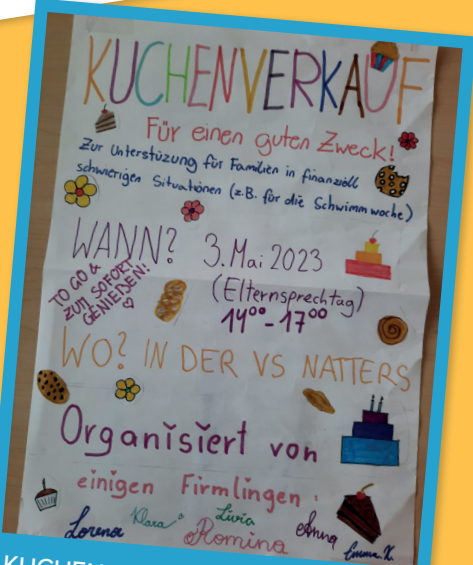 KUCHENVERKAUF
Für einen guten Zweck!
Zur Unterstüzung für Familien in finanziell
schwierigen Situationen (z.B. für die Schwimmwoche)
WANN? 3. Mai 2023
(Elternsprechtag)
14⁰⁰-17⁰⁰
TO GO &
ZUM SOFORT
GENIEßEN! ♡
WO? IN DER VS NATTERS
Organisiert von
einigen Firmlingen:
Lorena Klara Livia Romina Anna Emma.K.